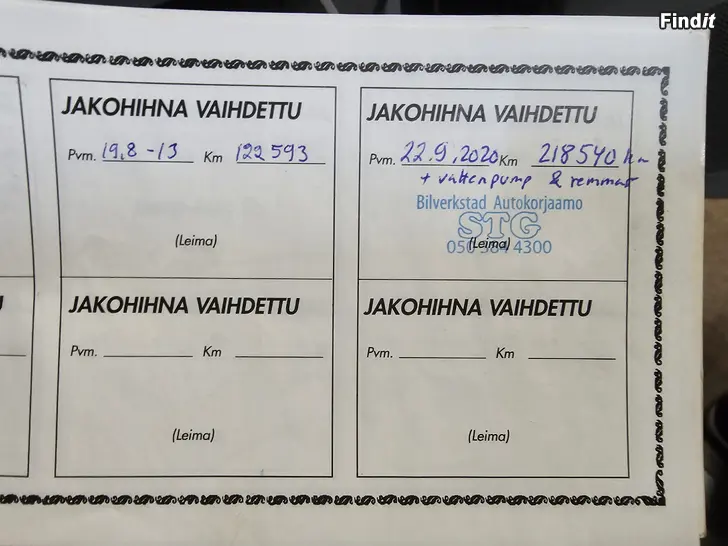 Findit
JAKOHIHNA VAIHDETTU
Pvm. 19.8-13 Km 122 593
(Leima)
JAKOHIHNA VAIHDETTU
Pvm. 22.9.2020 Km 218540 km
+ vattenpump & remmar
Bilverkstad Autokorjaamo
STG
(Leima)
050 584 4300
JAKOHIHNA VAIHDETTU
Pvm. Km
(Leima)
JAKOHIHNA VAIHDETTU
Pvm. Km
(Leima)